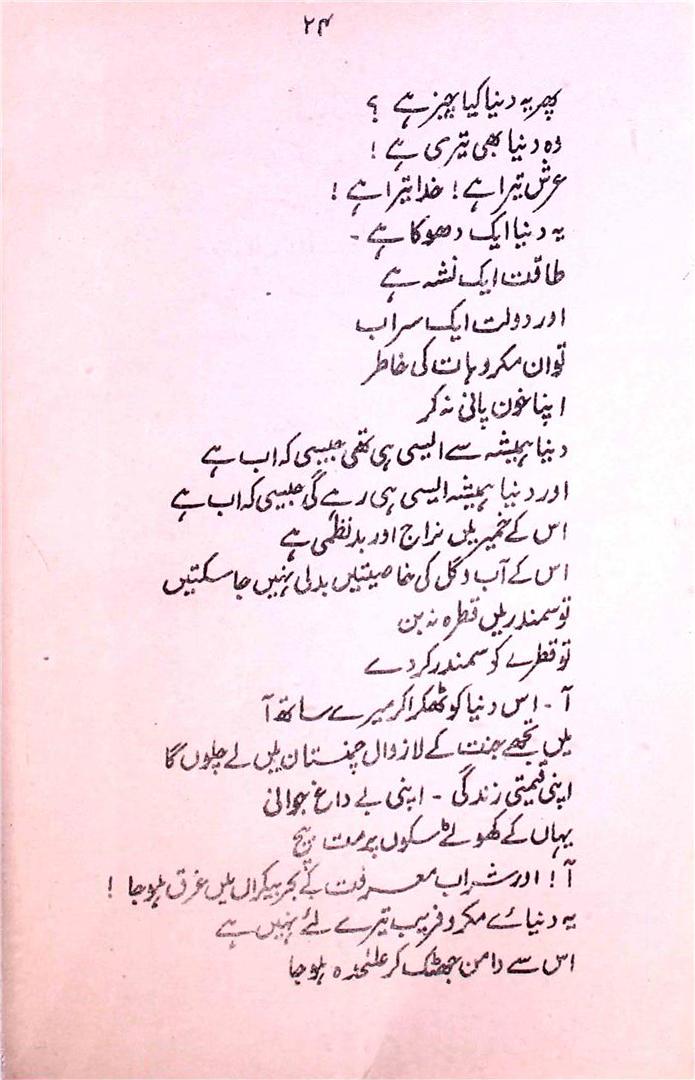 ۲۴
پھر یہ دنیا کیا چیز ہے ؟
وہ دنیا بھی تیری ہے !
عرش تیرا ہے ! خدا تیرا ہے !
یہ دنیا ایک دھوکا ہے ۔
طاقت ایک نشہ ہے
اور دولت ایک سراب
تو ان مکروہات کی خاطر
اپنا خون پانی نہ کر
دنیا ہمیشہ سے ایسی ہی تھی جیسی کہ اب ہے
اور دنیا ہمیشہ ایسی ہی رہے گی جیسی کہ اب ہے
اس کے خمیر میں نراج اور بدنظمی ہے
اس کے آب و گل کی خاصیتیں بدلی نہیں جا سکتیں
تو سمندر میں قطرہ نہ بن
تو قطرے کو سمندر کر دے
آ ۔ اس دنیا کو ٹھکرا کر میرے ساتھ آ
میں تجھے جنت کے لازوال چمنستان میں لے چلوں گا
اپنی قیمتی زندگی ۔ اپنی بے داغ جوانی
یہاں کے کھوٹے سکوں پر مت بیچ
آ ! اور شراب معرفت کے بحر بیکراں میں غرق ہو جا !
یہ دنیائے مکر و فریب تیرے لئے نہیں ہے
اس سے دامن جھٹک کر علٰحدہ ہو جا